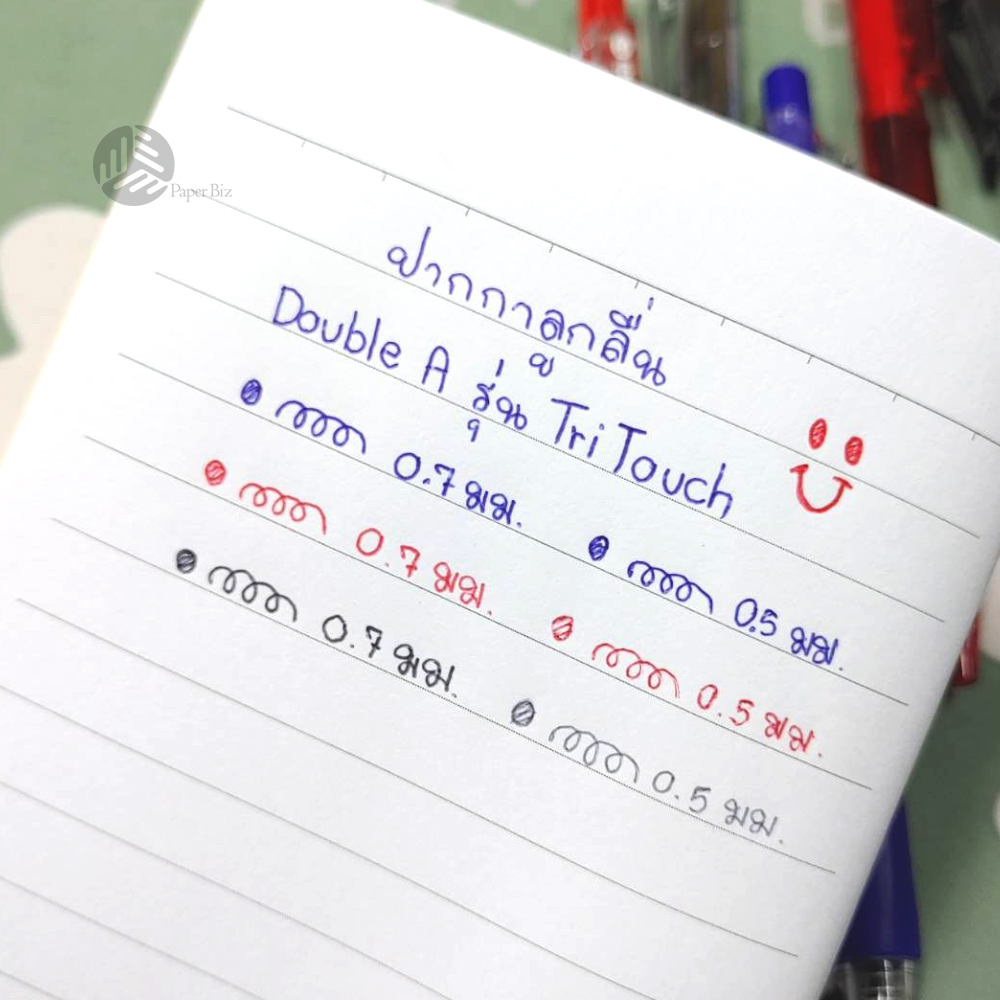 Paper Biz
ปากกาลูกลื่น
Double A รุ่น TriTouch
0.7 มม.
0.5 มม.
0.7 มม.
0.5 มม.
0.7 มม.
0.5 มม.